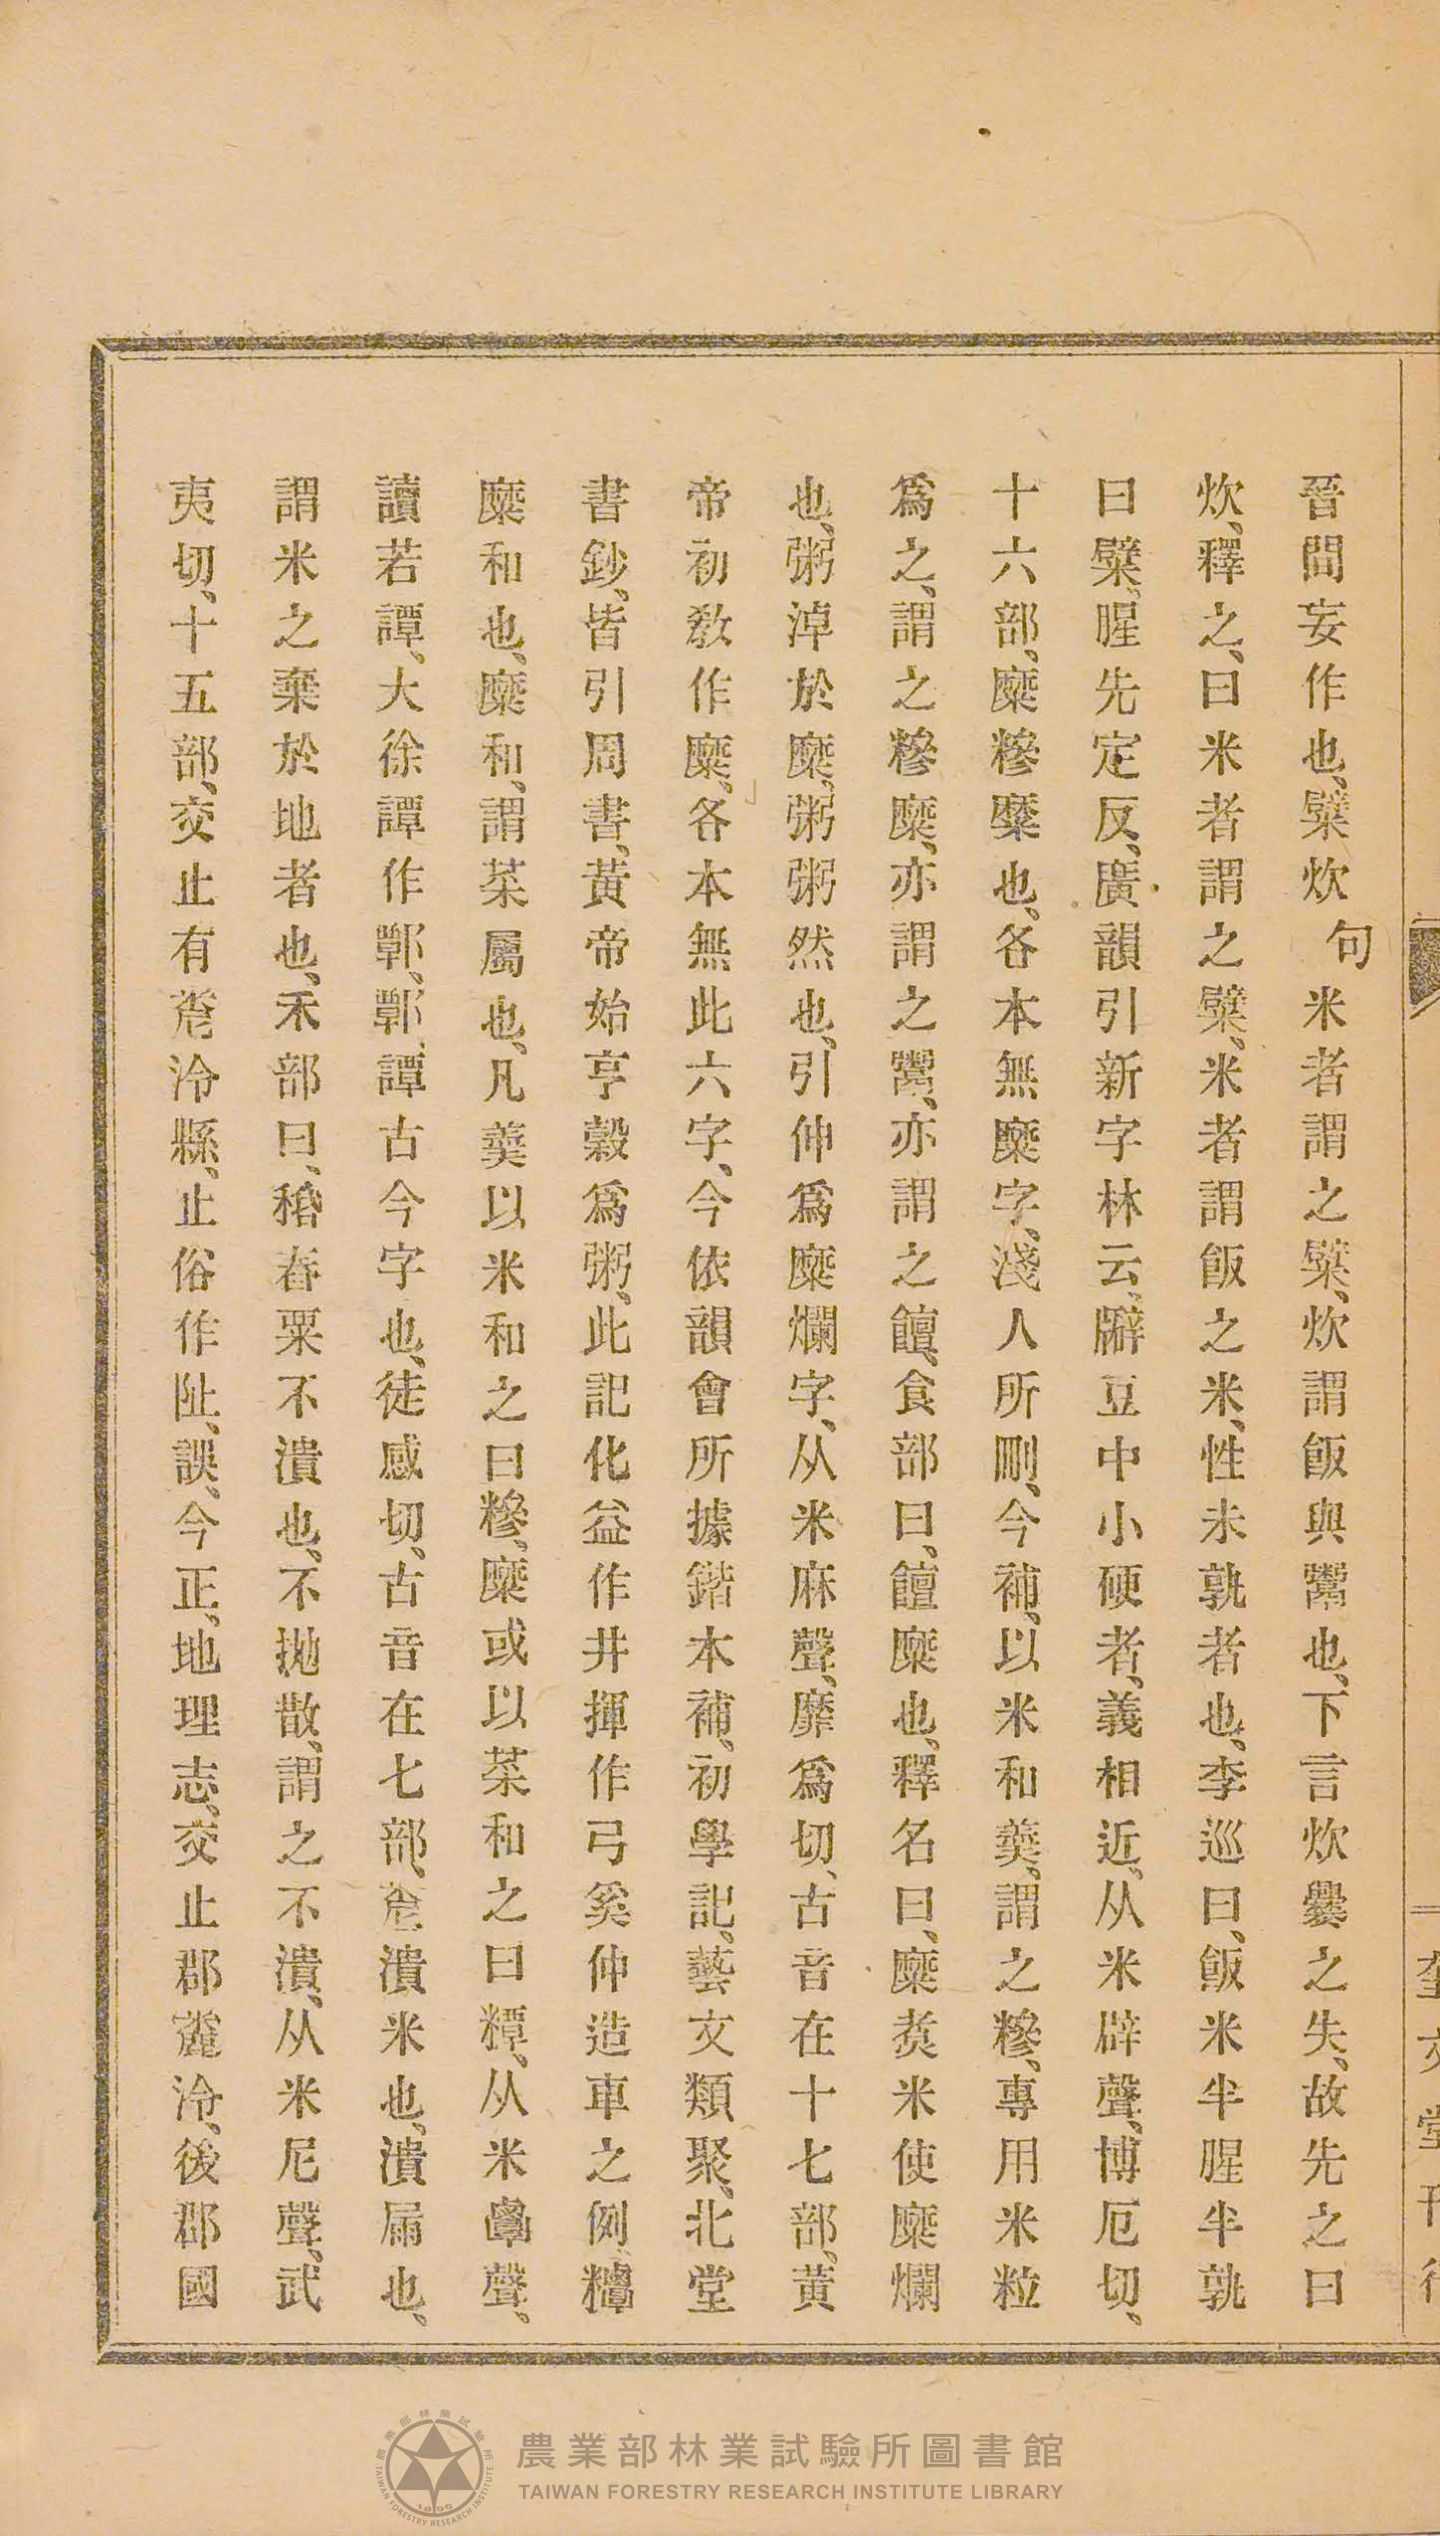 晉閒妄作也、糪炊句米者謂之糪、炊謂飯與鬻也、下言炊爨之失、故先之曰
炊、釋之、曰米者謂之糪、米者謂飯之米、性未孰者也、李巡曰、飯米半腥半孰
曰糪、腥先定反、廣韻引新字林云、𤖶豆中小硬者、義相近、从米辟聲、博厄切、
十六部、糜糝糜也、各本無糜字、淺人所刪、今補、以米和羹、謂之糝、專用米粒
爲之、謂之糝糜、亦謂之鬻、亦謂之饘、食部曰、饘糜也、釋名曰、糜煑米使糜爛
也、粥淖於糜、粥粥然也、引伸爲糜爛字、从米麻聲、靡爲切、古音在十七部、黃
帝初敎作糜、各本無此六字、今依韻會所據鍇本補、初學記、藝文類聚、北堂
書鈔、皆引周書、黃帝始亨穀爲粥、此記化益作井揮作弓奚仲造車之例、糂
糜和也、糜和、謂菜屬也、凡羹以米和之曰糝、糜或以菜和之曰糣、从米覃聲、
讀若譚、大徐譚作鄿、鄿、譚古今字也、徒感切、古音在七部、䊳潰米也、潰屚也、
謂米之棄於地者也、禾部曰、䅖舂粟不潰也、不拋散、謂之不潰、从米尼聲、武
夷切、十五部、交止有䊳泠縣、止俗作阯、誤、今正、地理志、交止郡麊泠、後郡國
農業部林業試驗所圖書館
TAIWAN FORESTRY RESEARCH INSTITUTE LIBRARY